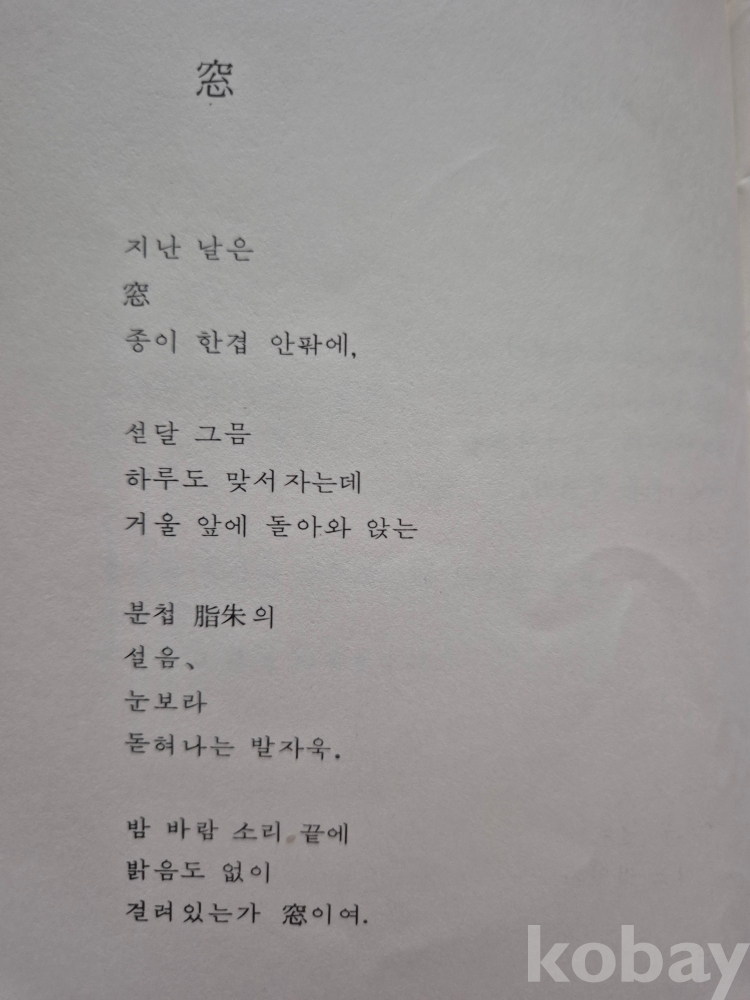 窓
지난 날은
窓
종이 한겹 안팎에,
섣달 그믐
하루도 맞서자는데
거울 앞에 돌아와 앉는
분첩 脂朱의
설음、
눈보라
돋혀나는 발자욱.
밤 바람 소리 끝에
밝음도 없이
걸려있는가 窓이여.
kobay